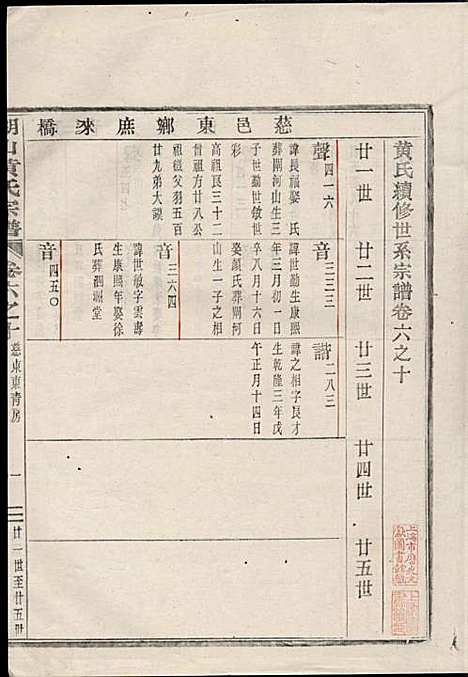 黄氏續修世系宗譜卷六之十
廿一世 廿二世 廿三世 廿四世 廿五世
慈邑東鄉庶來橋
聲四一六
諱長福娶 氏
葬開河山生三
子世勤世敏世
彩
高祖良三十二
曾祖方廿八公
祖鎧父羽五百
廿九弟大謨
音三三三
諱世勤生康熙
三年月初一日
卒八月十六日
娶顏氏葬開河
山生一子之相
音三六四
諱世敏字雲壽
生康熙年娶徐
氏葬泗洲堂
音四五〇
諧二八三
諱之相字良才
生乾隆三年戊
午正月十四日
山黄氏宗譜
卷六之十
慈東東青房
一
廿一世至廿五世